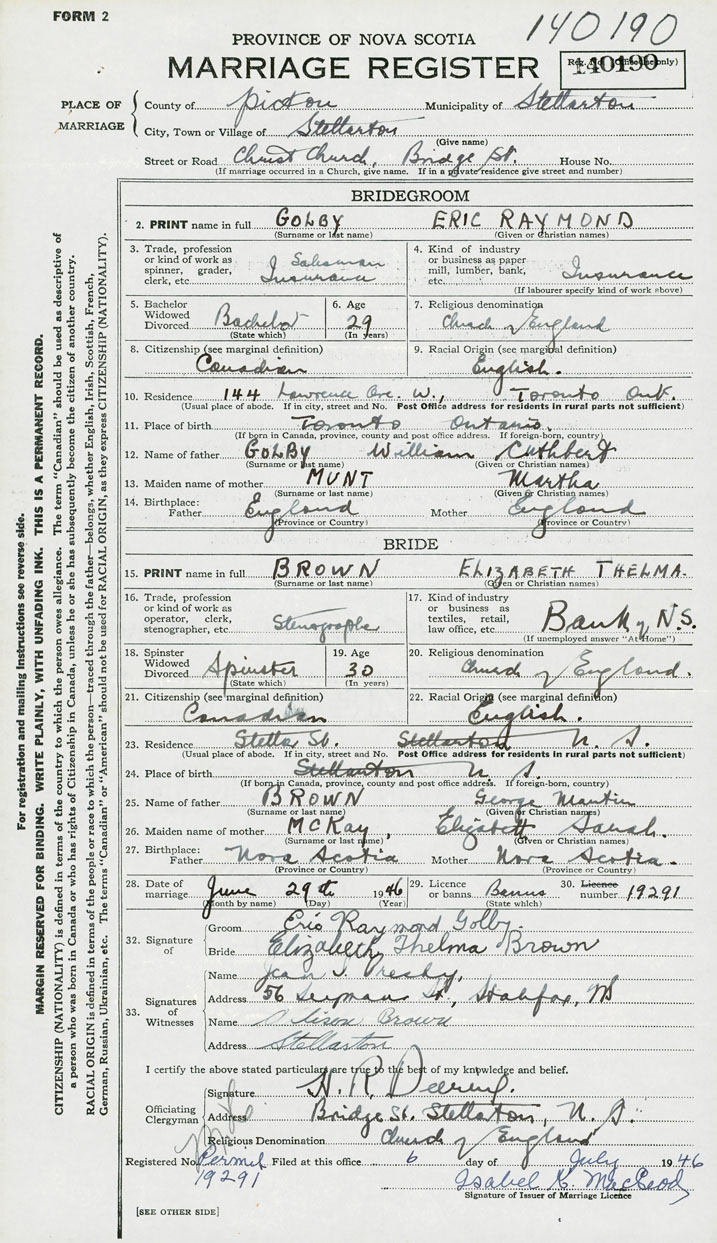 FORM 2
140190
PROVINCE OF NOVA SCOTIA
MARRIAGE REGISTER
Reg. No. (Office use only)
140190
PLACE OF MARRIAGE
County of Pictou Municipality of Stellarton
City, Town or Village of Stellarton
(Give name)
Street or Road Christ Church, Bridge St. House No.
(If marriage occurred in a Church, give name. If in a private residence give street and number)
BRIDEGROOM
2. PRINT name in full GOLBY ERIC RAYMOND
(Surname or last name) (Given or Christian names)
3. Trade, profession or kind of work as spinner, grader, clerk, etc. Salesman Insurance
4. Kind of industry or business as paper mill, lumber, bank, etc. Insurance
(If labourer specify kind of work above)
5. Bachelor Widowed Divorced Bachelor
(State which)
6. Age 29
(In years)
7. Religious denomination Church of England
8. Citizenship (see marginal definition) Canadian
9. Racial Origin (see marginal definition) English.
10. Residence 144 Lawrence Ave. W., Toronto Ont.
(Usual place of abode. If in city, street and No. Post Office address for residents in rural parts not sufficient)
11. Place of birth Toronto Ontario.
(If born in Canada, province, county and post office address. If foreign-born, country)
12. Name of father GOLBY William Cuthbert
(Surname or last name) (Given or Christian names)
13. Maiden name of mother MUNT Martha
(Surname or last name) (Given or Christian names)
14. Birthplace: Father England Mother England
(Province or Country) (Province or Country)
BRIDE
15. PRINT name in full BROWN ELIZABETH THELMA.
(Surname or last name) (Given or Christian names)
16. Trade, profession or kind of work as operator, clerk, stenographer, etc. Stenographer
17. Kind of industry or business as textiles, retail, law office, etc. Bank of N.S.
(If unemployed answer "At Home")
18. Spinster Widowed Divorced Spinster
(State which)
19. Age 30
(In years)
20. Religious denomination Church of England.
21. Citizenship (see marginal definition) Canadian
22. Racial Origin (see marginal definition) English.
23. Residence Stella St. Stellarton N. S.
(Usual place of abode. If in city, street and No. Post Office address for residents in rural parts not sufficient)
24. Place of birth Stellarton N. S.
(If born in Canada, province, county and post office address. If foreign-born, country)
25. Name of father BROWN George
(Surname or last name) (Given or Christian names)
26. Maiden name of mother McKay, Elizabeth Sarah.
(Surname or last name) (Given or Christian names)
27. Birthplace: Father Nova Scotia Mother Nova Scotia.
(Province or Country) (Province or Country)
28. Date of marriage June 29th 1946
(Month by name) (Day) (Year)
29. Licence or banns Banns
(State which)
30. Licence number 19291
32. Signature of
Groom Eric Raymond Golby.
Bride Elizabeth Thelma Brown
33. Signatures of Witnesses
Name Jean
Address 56 St., Halifax, NS
Name Alison Brown
Address Stellarton
I certify the above stated particulars are true to the best of my knowledge and belief.
Officiating Clergyman
Signature H. R. Deering.
Address Bridge St. Stellarton, N. S.
Religious Denomination Church of England
Registered No. Permit 19291 Filed at this office 6 day of July 1946
Isabel C. MacLeod
Signature of Issuer of Marriage Licence
[SEE OTHER SIDE]
For registration and mailing instructions see reverse side.
MARGIN RESERVED FOR BINDING. WRITE PLAINLY, WITH UNFADING INK. THIS IS A PERMANENT RECORD.
CITIZENSHIP (NATIONALITY) is defined in terms of the country to which the person owes allegiance. The term "Canadian" should be used as descriptive of
a person who was born in Canada or who has rights of Citizenship in Canada, unless he or she has subsequently become the citizen of another country.
RACIAL ORIGIN is defined in terms of the people or race to which the person—traced through the father—belongs, whether English, Irish, Scottish, French,
German, Russian, Ukrainian, etc. The terms "Canadian" or "American" should not be used for RACIAL ORIGIN, as they express CITIZENSHIP (NATIONALITY).